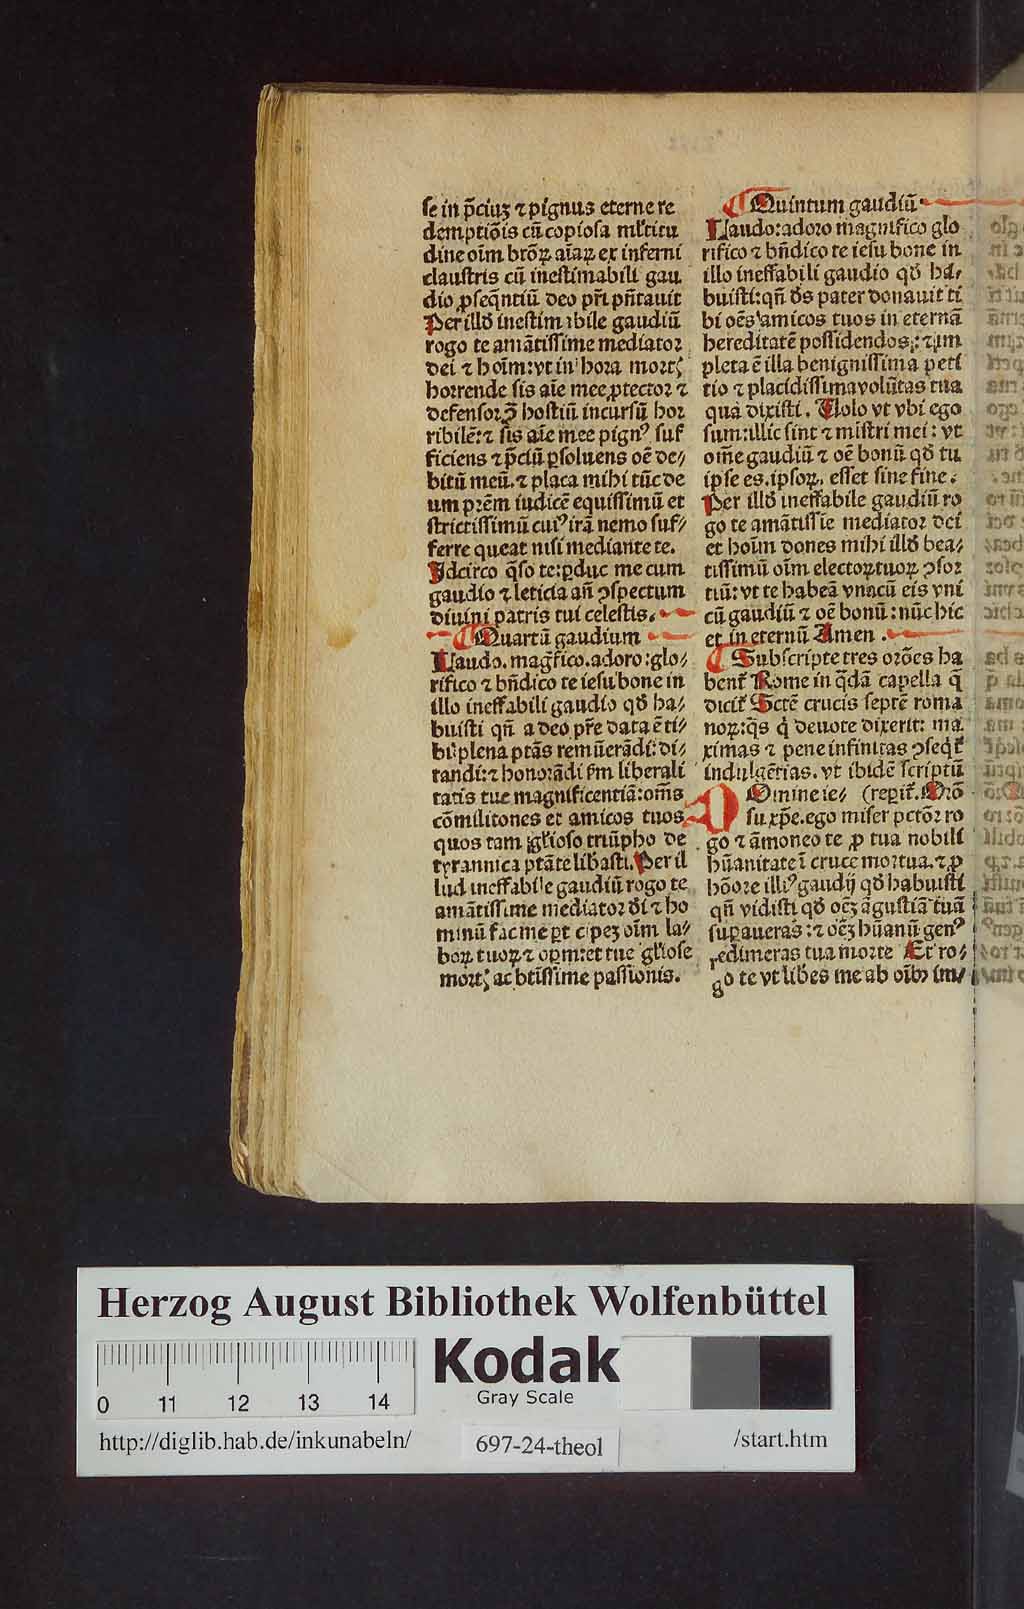 se in p̄ciuꝫ ⁊ pignus eterne re
demptiōis cū copiosa ml̄titu
dine oīm btōꝝ aīaꝝ ex inferni
claustris cū inestimabili gau
dio ꝓseq̄ntiū deo pr̄i pn̄tauit
Per illd̄ inestimabile gaudiū
rogo te amātissime mediator
dei ⁊ hoīm: vt in hora mortꝭ
horrende sis aīe mee ꝓtector ⁊
defensor ꝯ̄ hostiū incursū hor
ribilē: ⁊ sis aīe mee pignꝰ suf
ficiens ⁊ p̄ciū ꝑsoluens oē de⸗
bitū meū. ⁊ placa mihi tūc de
um prēm iudicē equissimū et
strictissimū cuiꝰ irā nemo suf⸗
ferre queat nisi mediante te.
Idcirco q̄so te: ꝑduc me cum
gaudio ⁊ leticia an̄ ꝯspectum
diuini patris tui celestis.
¶ Quartū gaudium
Laudo. magīfico. adoro: glo⸗
rifico ⁊ bn̄dico te iesu bone in
illo ineffabili gaudio qd̄ ha⸗
buisti qn̄ a deo pr̄e data ē ti⸗
bi plena ptās remūerādi: di⸗
tandi: ⁊ honorādi ẜm liberali
tatis tue magnificentiā: om̄s
cōmilitones et amicos tuos
quos tam gl̄ioso triūpho de
tyrannica ptāte libasti. Per il
lud ineffabile gaudiū rogo te
amātissime mediator di ⁊ ho
minū fac me ꝑticipeꝫ oīm la⸗
boꝝ tuoꝝ ⁊ oꝑm: et tue gl̄iose
mortꝭ ac btissime passionis.
¶ Quintum gaudiū
Laudo: adoro magnifico glo
rifico ⁊ bn̄dico te iesu bone in
illo ineffabili gaudio qd̄ ha⸗
buisti: qn̄ ds̄ pater donauit ti
bi oēs amicos tuos in eternā
hereditatē possidendos: ⁊ im
pleta ē illa benignissima peti
tio ⁊ placidissima volūtas tua
qua dixisti. Uolo vt vbi ego
sum: illic sint ⁊ mīstri mei: vt
om̄e gaudiū ⁊ oē bonū qd̄ tu
ipse es. ipsoꝝ. esset sine fine.
Per illd̄ ineffabile gaudiū ro
go te amātissīe mediator dei
et hoīm dones mihi illd̄ bea⸗
tissimū oīm electoꝝ tuoꝝ ꝯsor
tiū: vt te habeā vnacū eis vni
cū gaudiū ⁊ oē bonū: nūc hic
et in eternū Amen.
¶ Subscripte tres orōes ha
bent᷑ Rome in q̄dā capella q̄
dicit᷑ Sctē crucis septē roma
noꝝ: q̄s q̇ deuote dixerit: ma
ximas ⁊ pene infinitas ꝯseqt᷑
indulgētias. vt ibidē scriptū
DOmine ie⸗ (reꝑit᷑. Orō
su xp̄e. ego miser pctōr ro
go ⁊ āmoneo te ꝑ tua nobili
hūanitate ī cruce mortua. ⁊ ꝓ
hōore illiꝰ gaudij qd̄ habuisti
qn̄ vidisti qd̄ oēꝫ āgustiā tuā
suꝑaueras: ⁊ oēꝫ hūanū genꝰ
redimeras tua morte Et ro⸗
go te vt lib̄es me ab oīb᷒ im⸗
Herzog August Bibliothek Wolfenbüttel
Kodak
Gray Scale
0 11 12 13 14
http://diglib.hab.de/inkunabeln/
697-24-theol
/start.htm